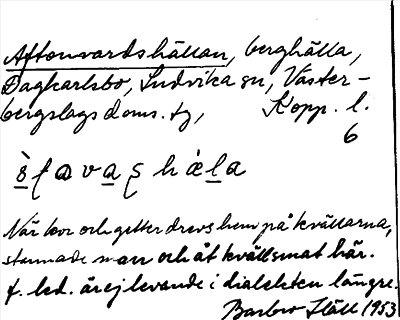 Aftonvardshällan, berghälla,
Dagkarlsbo, Ludvika sn, Väster-
bergslags doms. tg, Kopp. l.
6
När kor och getter drevs hem på kvällarna,
stannade man och åt kvällsmat här.
f. led. är ej levande i dialekten längre.
Barbro Ståll 1953